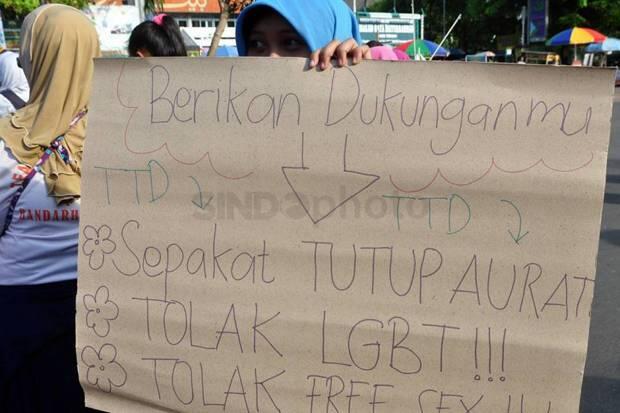 Berikan Dukunganmu
TTD
TTD
SINDOphoto
Sepakat TUTUP AURAT
TOLAK LGBT!!!
TOLAK FREE SEX!!!
BANDARH